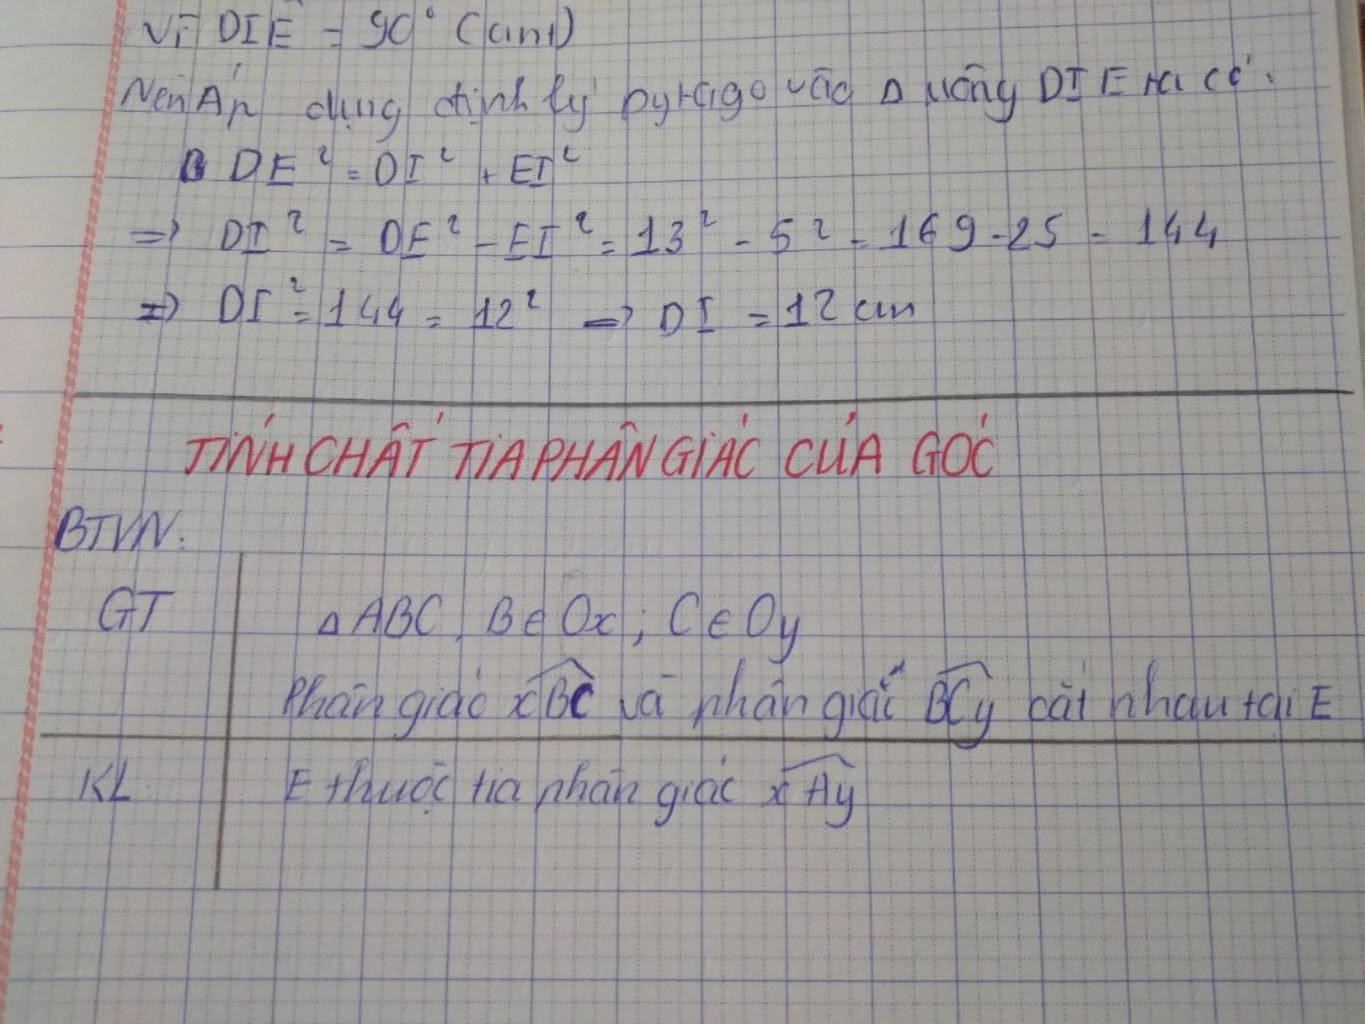 Vì DIE = 90° (cmt)
Nên Áp dụng định lý pytago vào Δ vuông DIE ta có:
DE² = DI² + EI²
=> DI² = DE² - EI² = 13² - 5² = 169 - 25 = 144
=> DI² = 144 = 12² => DI = 12 cm
TÍNH CHẤT TIA PHÂN GIÁC CỦA GÓC
BTVN:
GT Δ ABC, B ∈ Ox; C ∈ Oy
Phân giác xBC và phân giác BCy cắt nhau tại E
KL E thuộc tia phân giác xAy